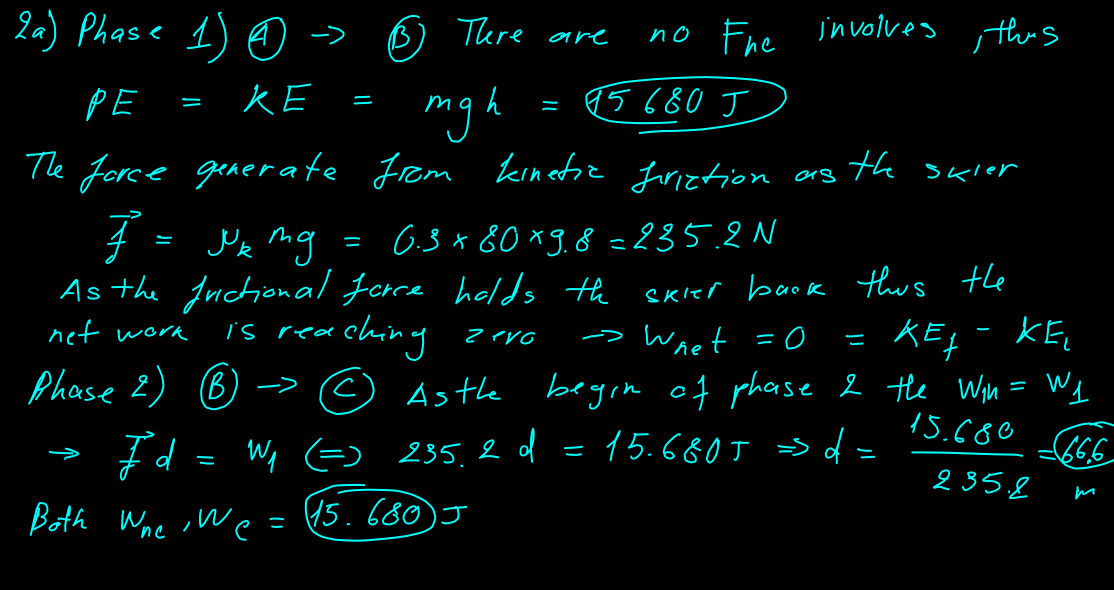 2a) Phase 1) A → B There are no Fnc involves, thus
PE = KE = mgh = 15 680 J
The force generate from kinetic friction as the skier
f⃗ = μk mg = 0.3 × 80 × 9.8 = 235.2 N
As the frictional force holds th skier back thus the
net work is reaching zero → Wnet = 0 = KEf - KEi
Phase 2) B → C As the begin of phase 2 the Win = W1
→ f⃗d = W1 ⇔ 235.2 d = 15.680 J ⇒ d = 15.680 / 235.2 = 66.6 m
Both Wnc, Wc = 15.680 J